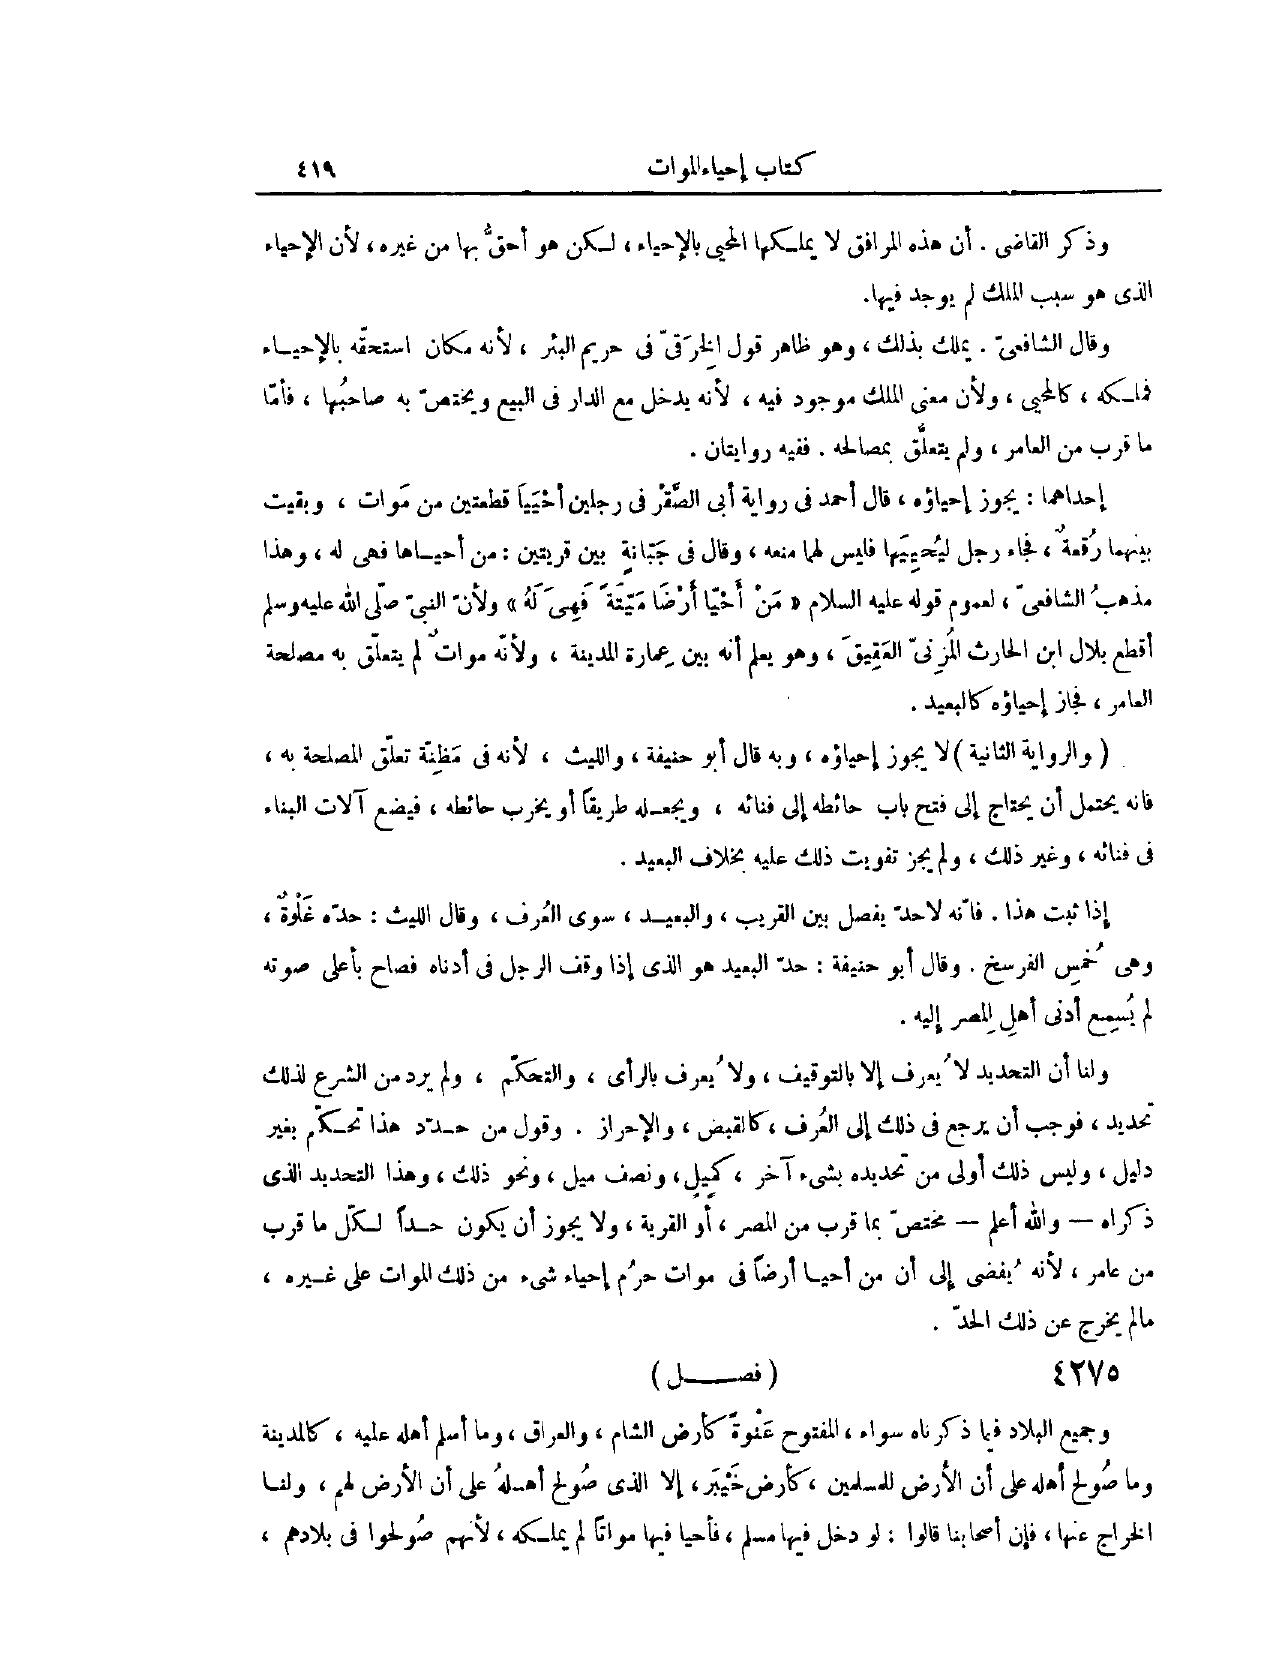 كتاب إحياءالموات ٤١٩
وذكر القاضى . أن هذه المرافق لا يملكها المحيى بالإحياء ، لكن هو أحقُّ بها من غيره ، لأن الإحياء
الذى هو سبب الملك لم يوجد فيها.
وقال الشافعىّ . يملك بذلك ، وهو ظاهر قول الخِرَقىّ فى حريم البئر ، لأنه مكان استحقّه بالإحياء
فملكه ، كالمحيى ، ولأن معنى الملك موجود فيه ، لأنه يدخل مع الدار فى البيع ويختصّ به صاحبُها ، فأمّا
ما قرب من العامر ، ولم يتعلَّق بمصالحه . ففيه روايتان .
إحداهما : يجوز إحياؤه ، قال أحمد فى رواية أبى الصَّقْر فى رجلين أحْيَيَا قطعتين من مَوات ، وبقيت
بينهما رُقعةٌ ، فجاء رجل ليُحيِيَها فليس لهما منعه ، وقال فى جَبّانةٍ بين قريتين : من أحياها فهى له ، وهذا
مذهبُ الشافعىّ ، لعموم قوله عليه السلام « مَنْ أَحْيَا أَرْضًا مَيِّتَةً فَهِىَ لَهُ » ولأنّ النبىّ صلّى الله عليه وسلم
أقطع بلال ابن الحارث المُزنِىّ العَقِيقَ ، وهو يعلم أنه بين عِمارة المدينة ، ولأنّه مواتٌ لم يتعلّق به مصلحة
العامر ، فجاز إحياؤه كالبعيد .
( والرواية الثانية ) لا يجوز إحياؤه ، وبه قال أبو حنيفة ، والليث ، لأنه فى مَظِنّة تعلّق المصلحة به ،
فانه يحتمل أن يحتاج إلى فتح باب حائطه إلى فنائه ، ويجعله طريقاً أو يخرب حائطه ، فيضع آلات البناء
فى فنائه ، وغير ذلك ، ولم يجز تفويت ذلك عليه بخلاف البعيد .
إذا ثبت هذا . فانّه لاحدّ يفصل بين القريب ، والبعيد ، سوى العُرف ، وقال الليث : حدّه غَلْوةٌ ،
وهى خُمس الفرسخ . وقال أبو حنيفة : حدّ البعيد هو الذى إذا وقف الرجل فى أدناه فصاح بأعلى صوته
لم يُسمِع أدنى أهلِ المِصر إليه .
ولنا أن التحديد لا يُعرف إلا بالتوقيف ، ولا يُعرف بالرأى ، والتحكّم ، ولم يرد من الشرع لذلك
تحديد ، فوجب أن يرجع فى ذلك إلى العُرف ، كالقبض ، والإحراز . وقول من حدّد هذا تحكّم بغير
دليل ، وليس ذلك أولى من تحديده بشىء آخر ، كَمِيلٍ ، ونصف ميل ، ونحو ذلك ، وهذا التحديد الذى
ذكراه — والله أعلم — مختصّ بما قرب من المصر ، أو القرية ، ولا يجوز أن يكون حداً لكلّ ما قرب
من عامر ، لأنه يُفضى إلى أن من أحيا أرضاً فى موات حرُم إحياء شىء من ذلك الموات على غيره ،
مالم يخرج عن ذلك الحدّ .
٤٢٧٥ ( فصل )
وجميع البلاد فيما ذكرناه سواء ، المفتوح عَنْوةً كأرض الشام ، والعراق ، وما أسلم أهله عليه ، كالمدينة
وما صُولح أهله على أن الأرض للمسلمين ، كأرض خَيْبَر ، إلا الذى صُولح أهلهُ على أن الأرض لهم ، ولنا
الخراج عنها ، فإن أصحابنا قالوا : لو دخل فيها مسلم ، فأحيا فيها مواتاً لم يملكه ، لأنهم صُولحوا فى بلادهم ،